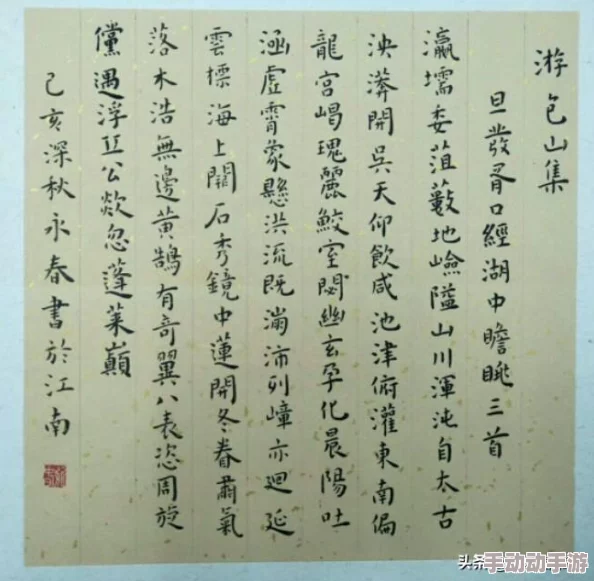 游包山集
旦發胥口經湖中瞻眺三首
瀛壖委菹藪地嶮隘山川渾沌自太古
泱漭開吳天仰飲咸池津俯灌東南偏
龍宮嵑瑰麗鮫室閟幽玄孕化晨陽吐
涵虛霄蒙懸洪流既漰沛列嶂亦迴延
雲標海上闕石秀鏡中蓮開冬眷肅氣
落木浩無邊黃鵠有奇翼八表恣周旋
儻遇浮丘公欻忽蓬萊巔
己亥深秋永春書於江南
头条
手动动手游